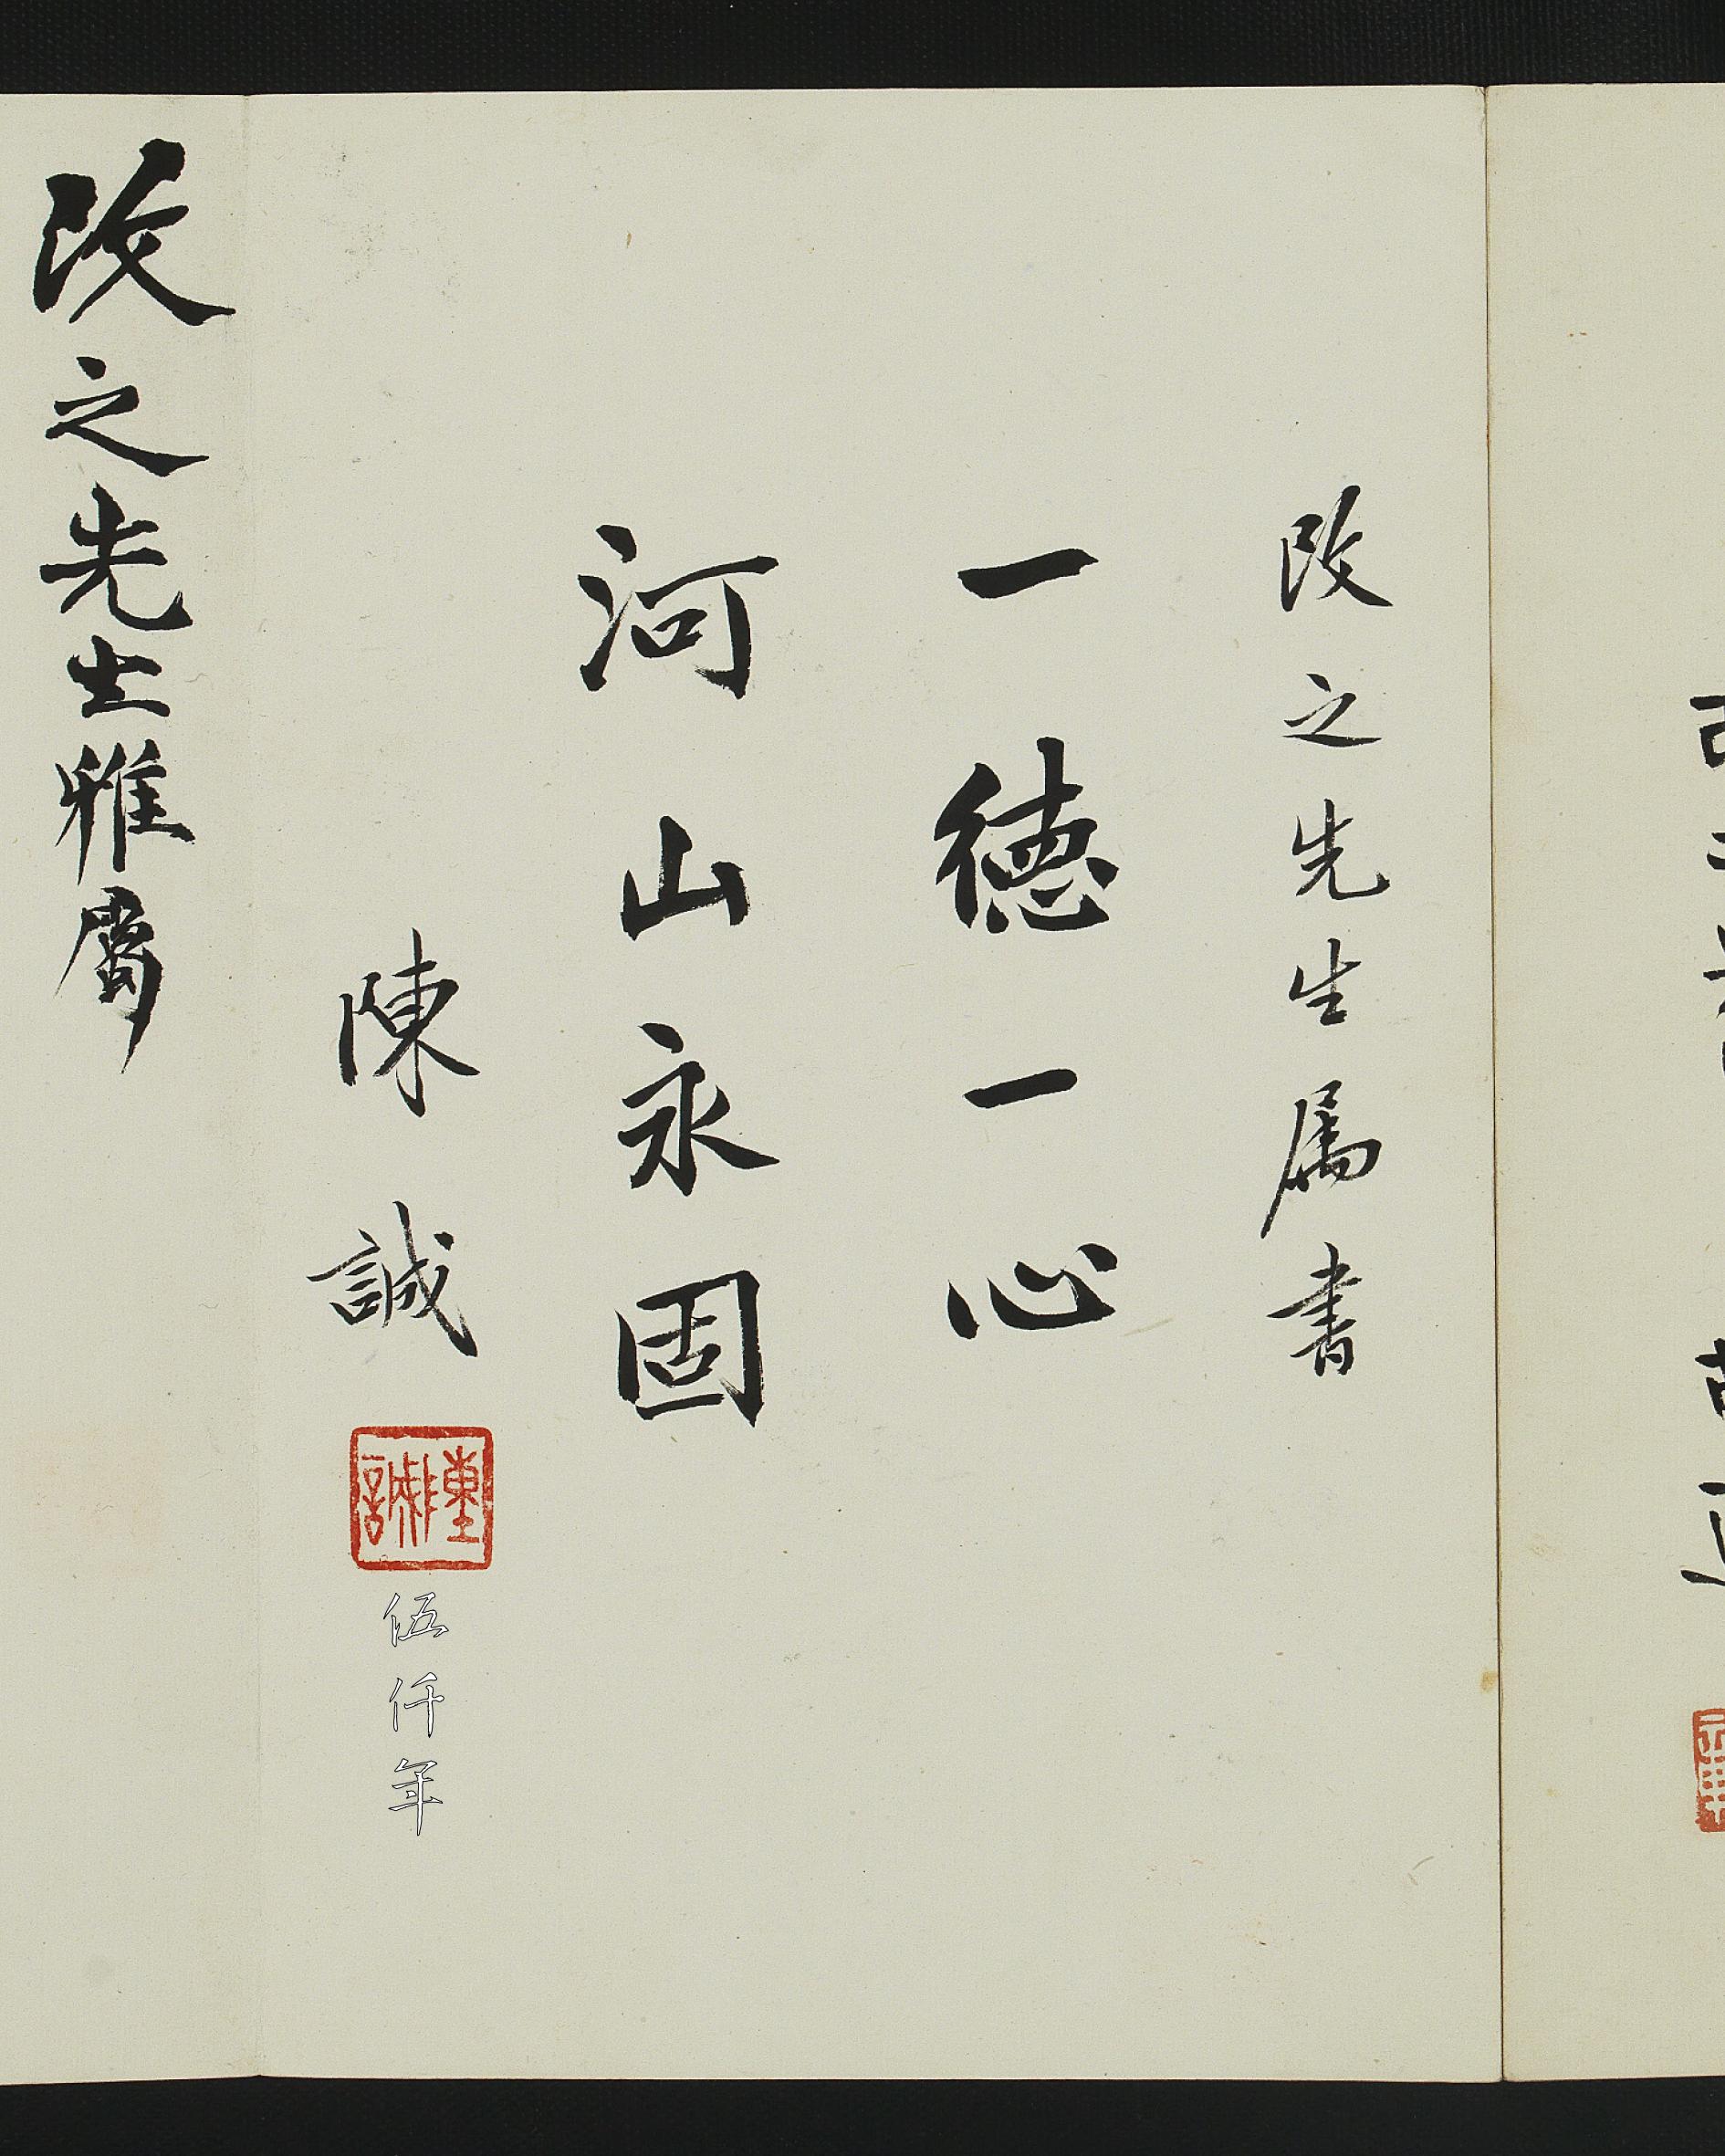 改之先生属書
一德一心
河山永固
陳誠
陳誠
伍仟年
改之先生雅屬